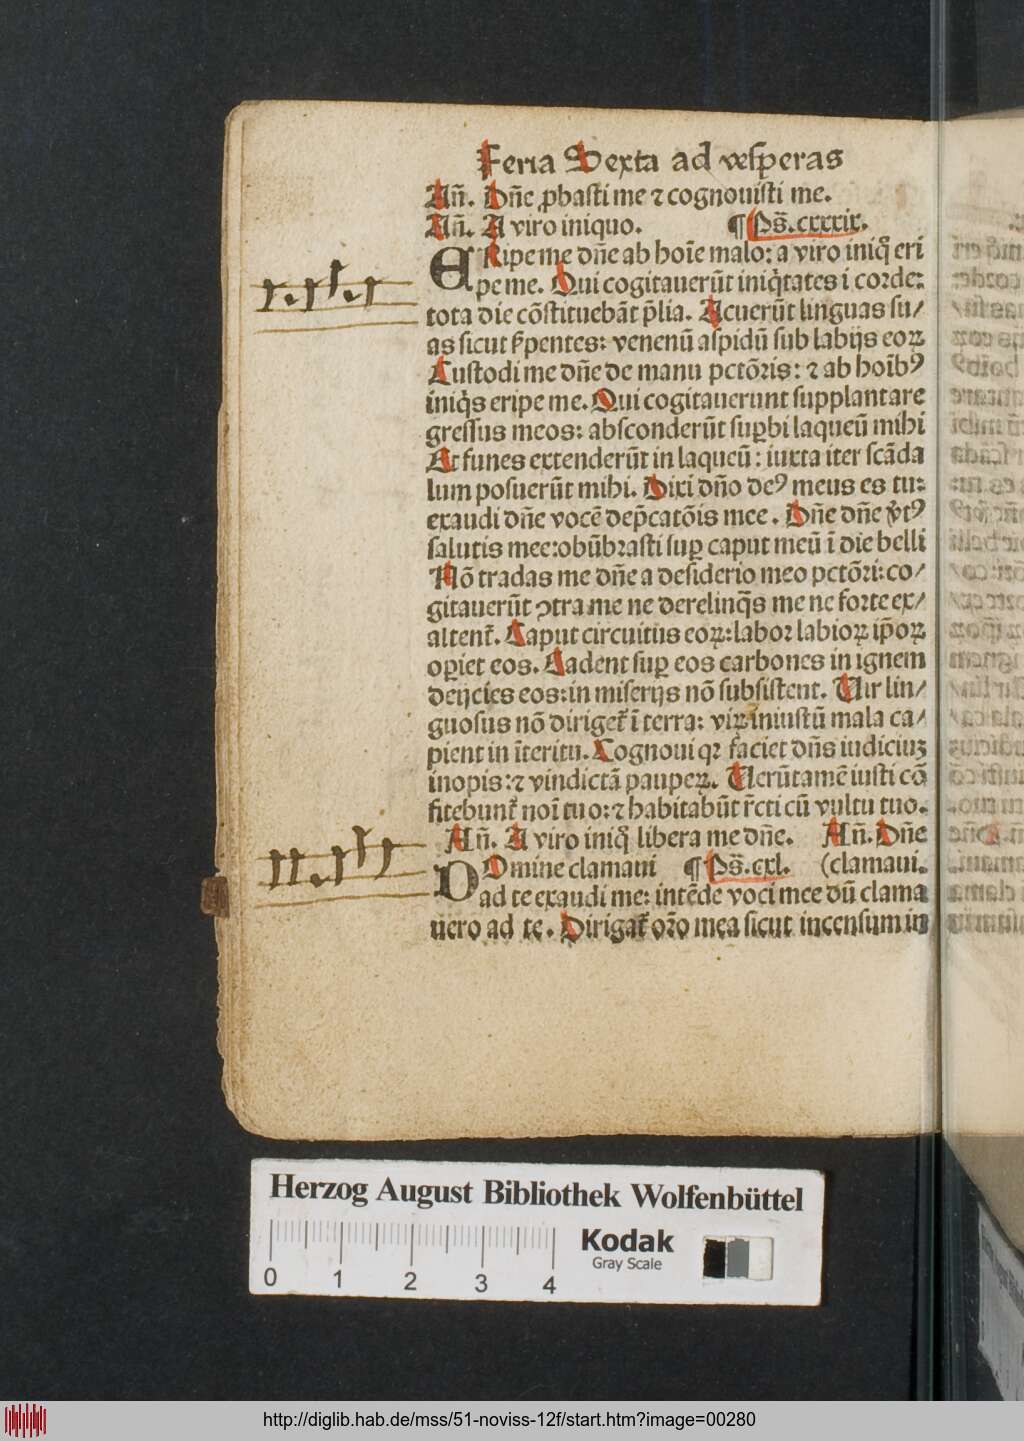 Feria Sexta ad vesꝑas
Añ. Dñe ꝓbasti me ⁊ cognouisti me.
Añ. A viro iniquo. ¶ Ps̄. cxxxix.
ERipe me dñe ab hoīe malo: a viro iniq̄ eri
pe me. Qui cogitauerūt iniq̇tates i corde:
tota die cōstituebāt p̄lia. Acuerūt linguas su/
as sicut ẜpentes: venenū aspidū sub labijs eoꝝ
Custodi me dñe de manu pctōris: ⁊ ab hoīb⁹
iniq̇s eripe me. Qui cogitauerunt supplantare
gressus meos: absconderūt suꝑbi laqueū mihi
Et funes extenderūt in laqueū: iuxta iter scāda
lum posuerūt mihi. Dixi dño de⁹ meus es tu:
exaudi dñe vocē dep̄catōis mee. Dñe dñe v̇t⁹
salutis mee: obūbrasti suꝑ caput meū ī die belli
Nō tradas me dñe a desiderio meo pctōri: co/
gitauerūt ꝯtra me ne derelinq̄s me ne forte ex/
altent᷑. Caput circuitus eoꝝ: labor labioꝝ ip̄oꝝ
oꝑiet eos. Cadent suꝑ eos carbones in ignem
deijcies eos: in miserijs nō subsistent. Uir lin/
guosus nō diriget᷑ ī terra: virꝫ iniustū mala ca/
pient in īteritu. Cognoui qꝛ faciet dñs iudiciuꝫ
inopis: ⁊ vindictā pauperꝝ. Uerūtamē iusti cō
fitebunt᷑ noī tuo: ⁊ habitabūt r̄cti cū vultu tuo.
Añ. A viro iniq̄ libera me dñe. Añ. Dñe
DOmine clamaui ¶ Ps̄. cxl. (clamaui.
ad te exaudi me: intēde voci mee dū clama
uero ad te. Dirigat᷑ or̄o mea sicut incensum in
Herzog August Bibliothek Wolfenbüttel
0 1 2 3 4
Kodak
Gray Scale
http://diglib.hab.de/mss/51-noviss-12f/start.htm?image=00280